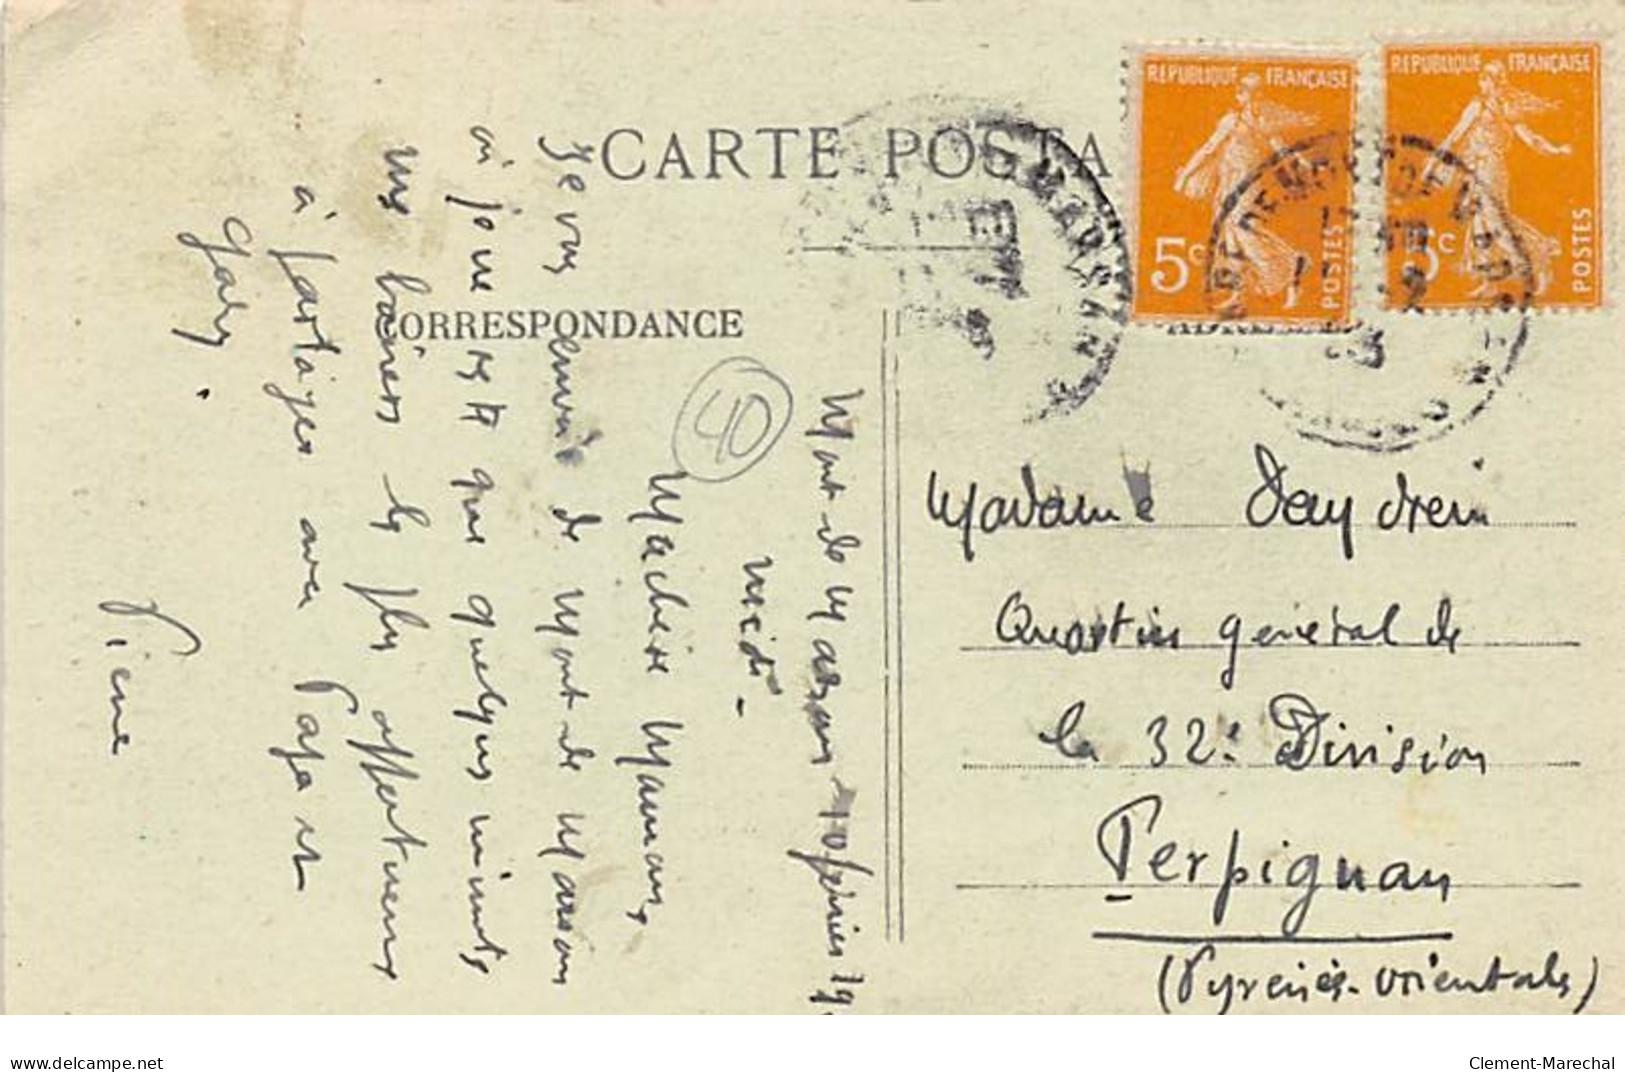 CARTE POSTA
CORRESPONDANCE
REPUBLIQUE FRANÇAISE
5c
POSTES
REPUBLIQUE FRANÇAISE
5c
POSTES
40
Mont de Marsan 10 février 19
midi -
Ma chère Maman,
Je vous envoie de Mont de Marsan
où je ne reste que quelques minutes
mes baisers les plus affectueux
à partager avec Papa et
Gaby.
Pierre
Madame Daydrein
Quartier général de
la 32e Division
Perpignan
(Pyrénées-Orientales)
delcampe.net
Clement-Marechal